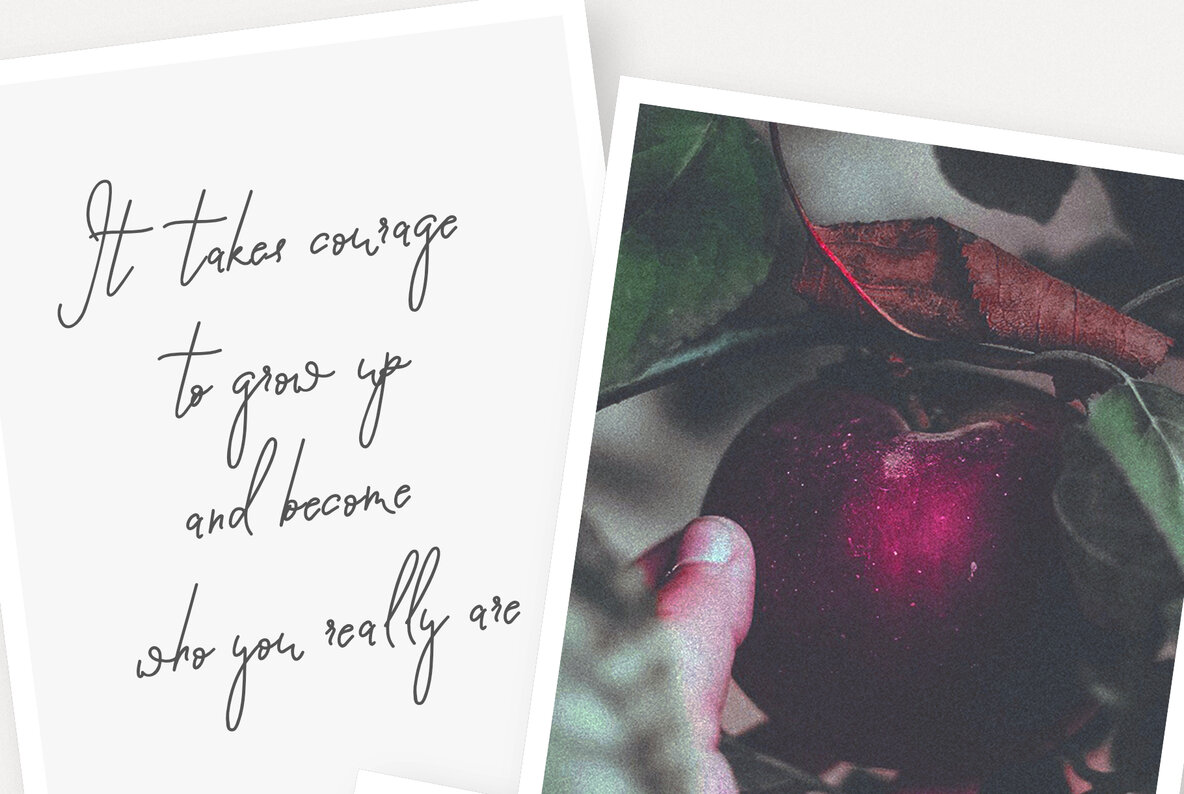 It takes courage
to grow up
and become
who you really are